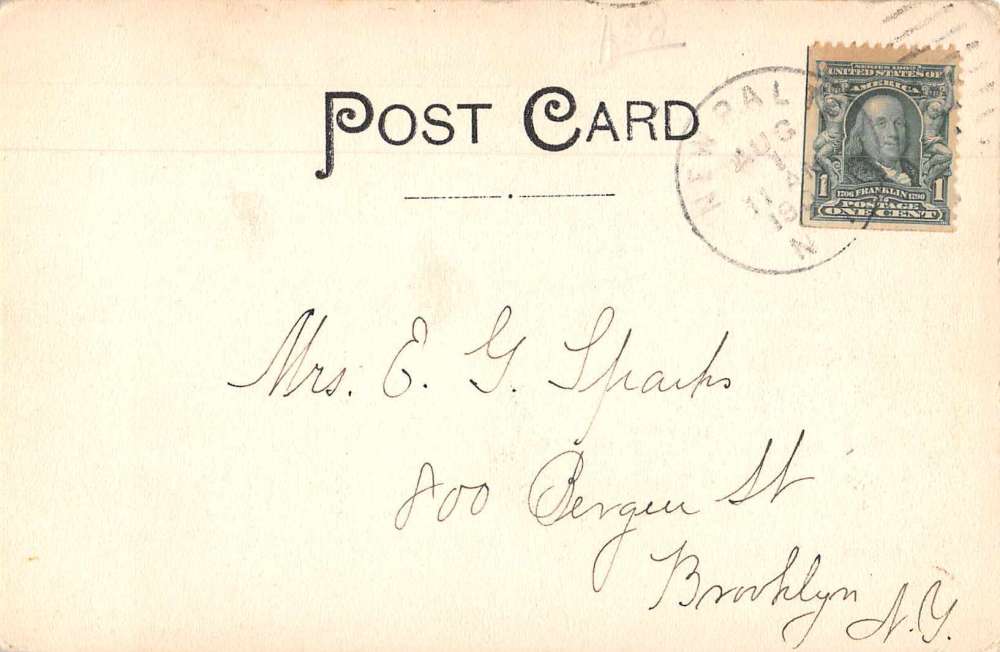 POST CARD
NEW BAL
AUG
11 A
19
N
SERIES 1902
UNITED STATES OF
AMERICA
1 1706 FRANKLIN 1790 1
POSTAGE
ONE CENT
Mrs. E. G. Sparks
800 Bergen St
Brooklyn
N.Y.